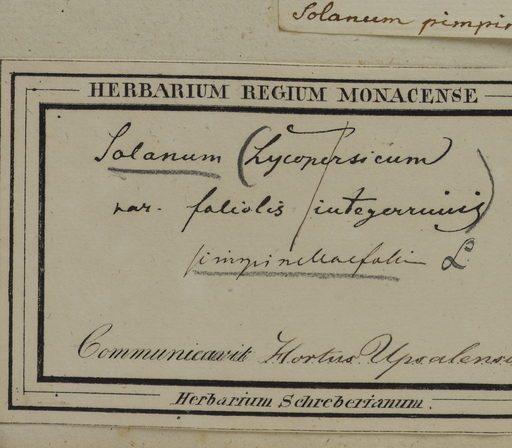 Solanum pimpin
HERBARIUM REGIUM MONACENSE
Solanum (Lycopersicum
var. foliolis integerrimis)
pimpinellaefoli L.
Communicavit Hortus Upsalensis
Herbarium Schreberianum.